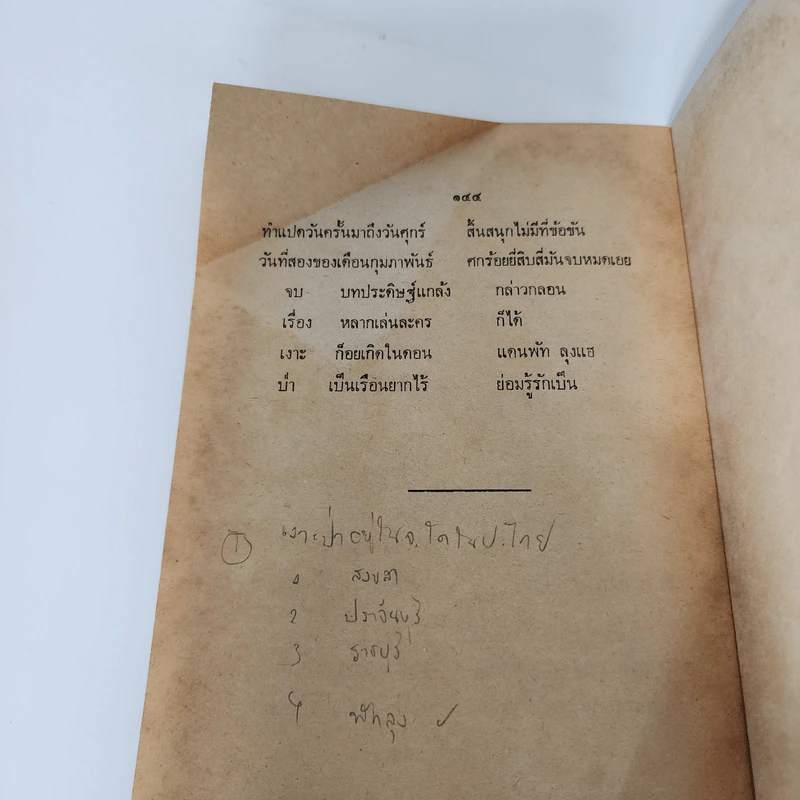 ๑๔๔
ทำแปดวันครั้นมาถึงวันศุกร์ สิ้นสนุกไม่มีที่ข้อขัน
วันที่สองของเดือนกุมภาพันธ์ ศกร้อยยี่สิบสี่มันจบหมดเอย
จบ บทประดิษฐ์แกล้ง กล่าวกลอน
เรื่อง หลากเล่นละคร ก็ได้
เงาะ ก็อยเกิดในดอน แดนพัท ลุงแฮ
ป่า เป็นเรือนยากไร้ ย่อมรู้รักเป็น
1 เงาะป่าอยู่ใน จ. ใดใน ป. ไทย
1 สงขลา
2 ปราจีนบุรี
3 ราชบุรี
4 พัทลุง ✓